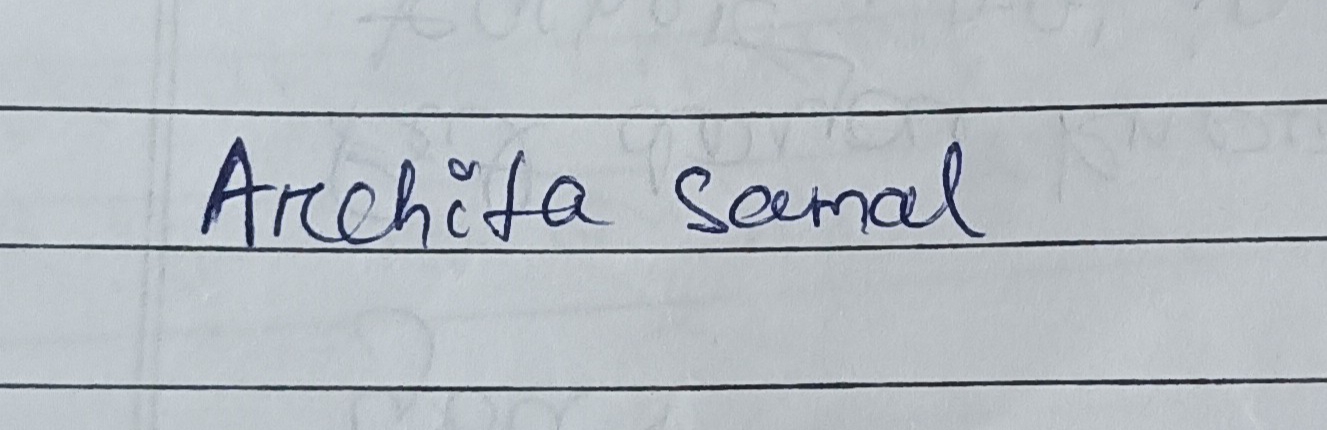 Archita Samal